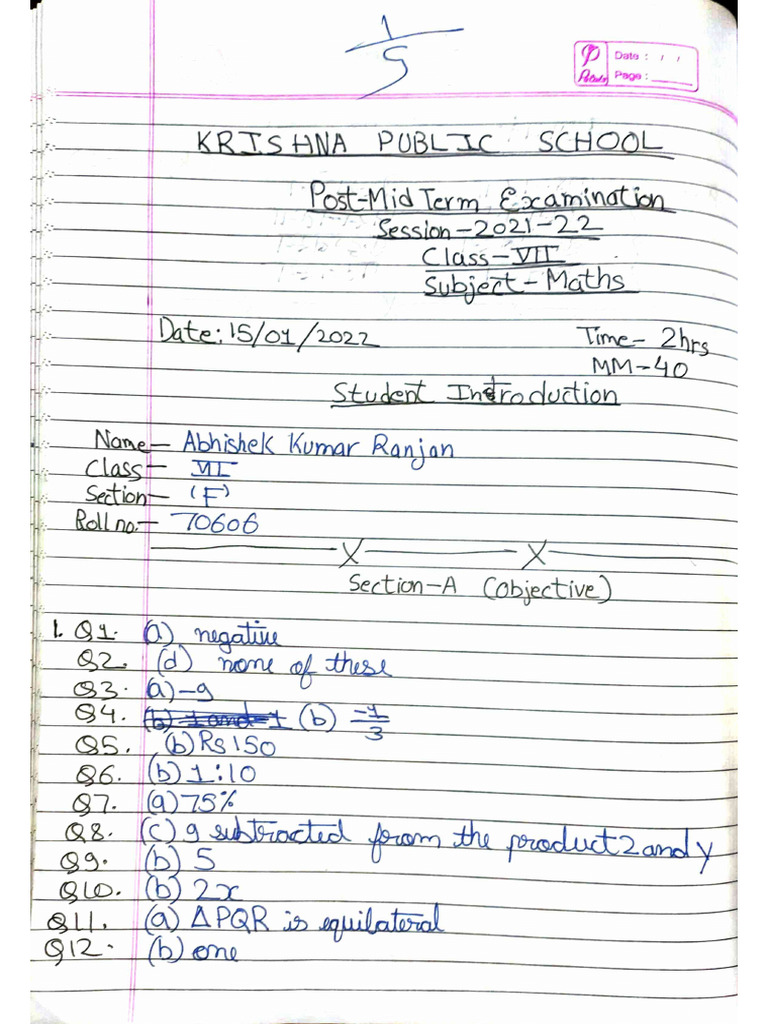 1
5
Date : / /
Page :
KRISHNA PUBLIC SCHOOL
Post-Mid Term Examination
Session-2021-22
Class-VII
Subject-Maths
Date: 15/01/2022 Time- 2hrs
MM-40
Student Introduction
Name- Abhishek Kumar Ranjan
Class- VII
Section- (F)
Roll no.- 70606
X X
Section-A (Objective)
1. Q1. (a) negative
Q2. (d) none of these
Q3. (a) -9
Q4. (b) 1 and -1 (b) -1/3
Q5. (b) Rs 150
Q6. (b) 1:10
Q7. (a) 75%
Q8. (c) 9 subtracted from the product 2 and y
Q9. (b) 5
Q10. (b) 2x
Q11. (a) ΔPQR is equilateral
Q12. (b) one